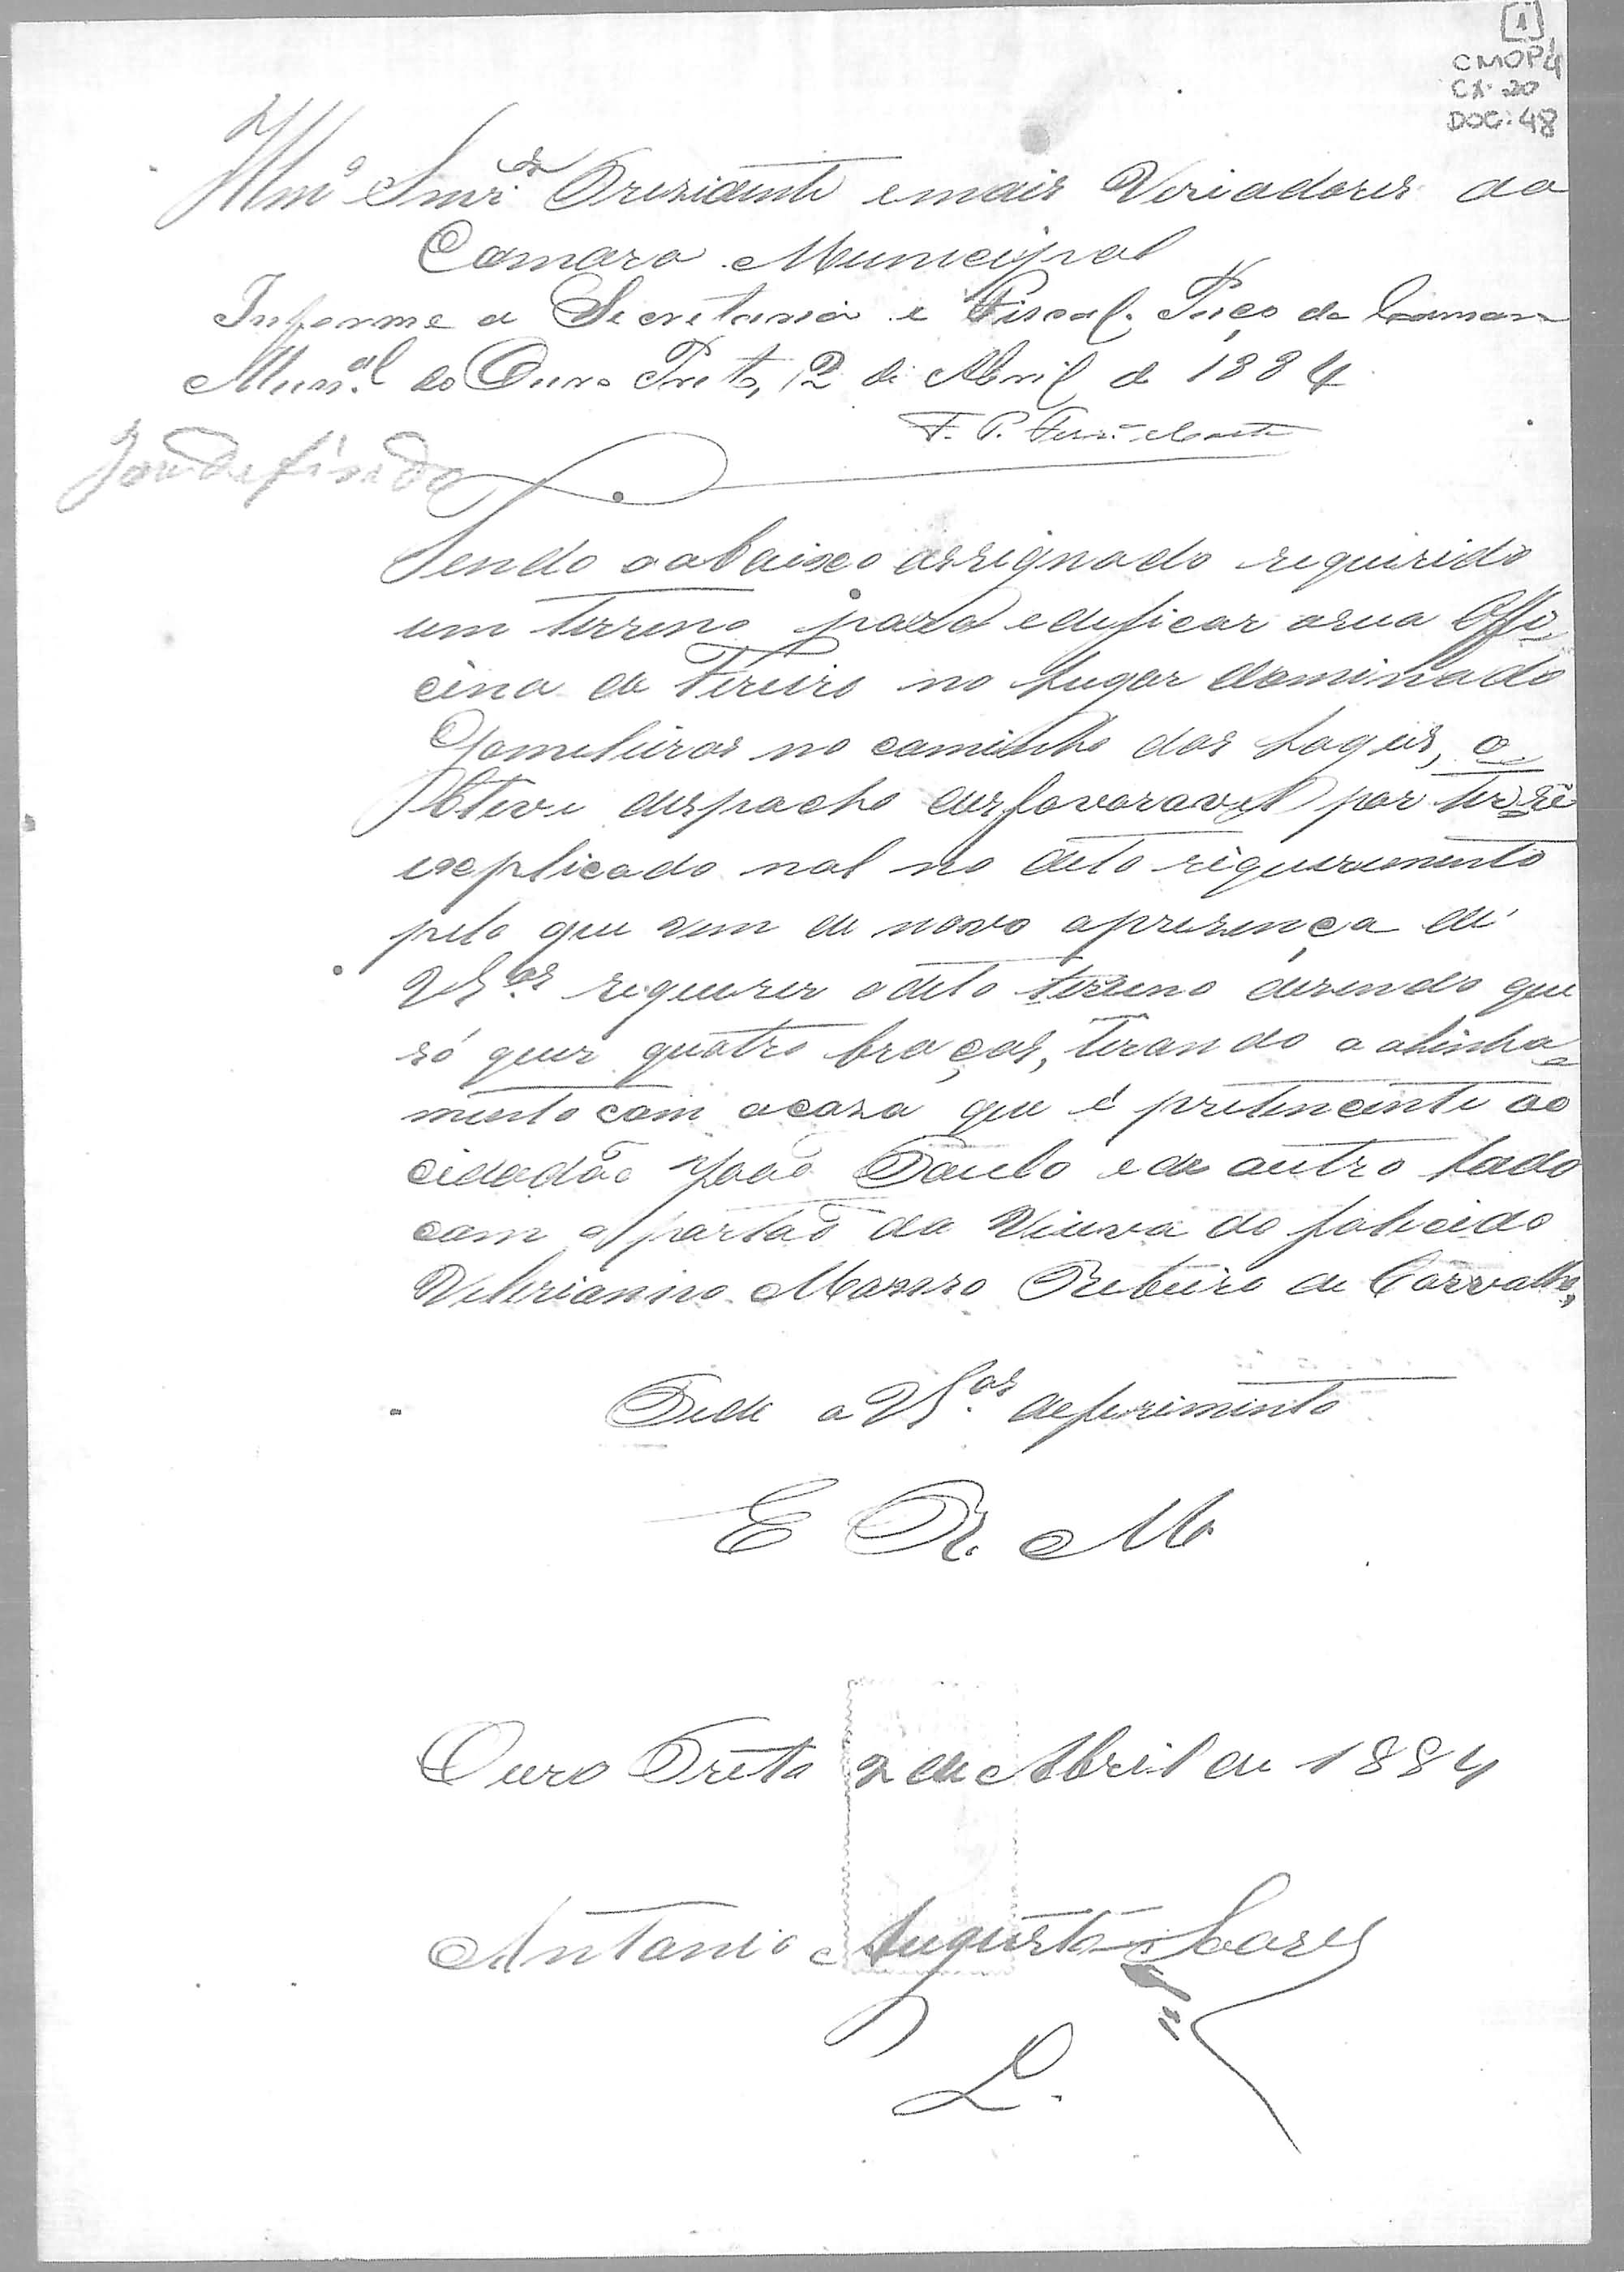 [1]
CMOP4
CX. 20
DOC: 48
Illmº Snrs. Presidente e mais Veriadores da
Camara Municipal
Informe a Secretaria e Fiscal. Paço da Camara
Munal. do Ouro Preto, 2 de Abril de 1884
F. P.
Tendo o abaixo assignado requirido
um terreno para edificar a sua Offi-
cina de Fireiro no Lugar dominado
no caminho das Lages, o
bteve despacho desfavoravel por ter se
explicado mal no dito requerimento
pelo que vem de novo a presença de
VSas. requerer o dito terreno disendo que
só quer quatro braças, tirando o alinha-
mento com a casa que é pretencente ao
cidadão João Paulo e de outro lado
com o portão da Viuva do falicido
Ribeiro de Carvalho,
Pede a VSas. deferimento
E R. M
Ouro Preto 2 de Abril de 1884
Antonio Augusto Soares
L.